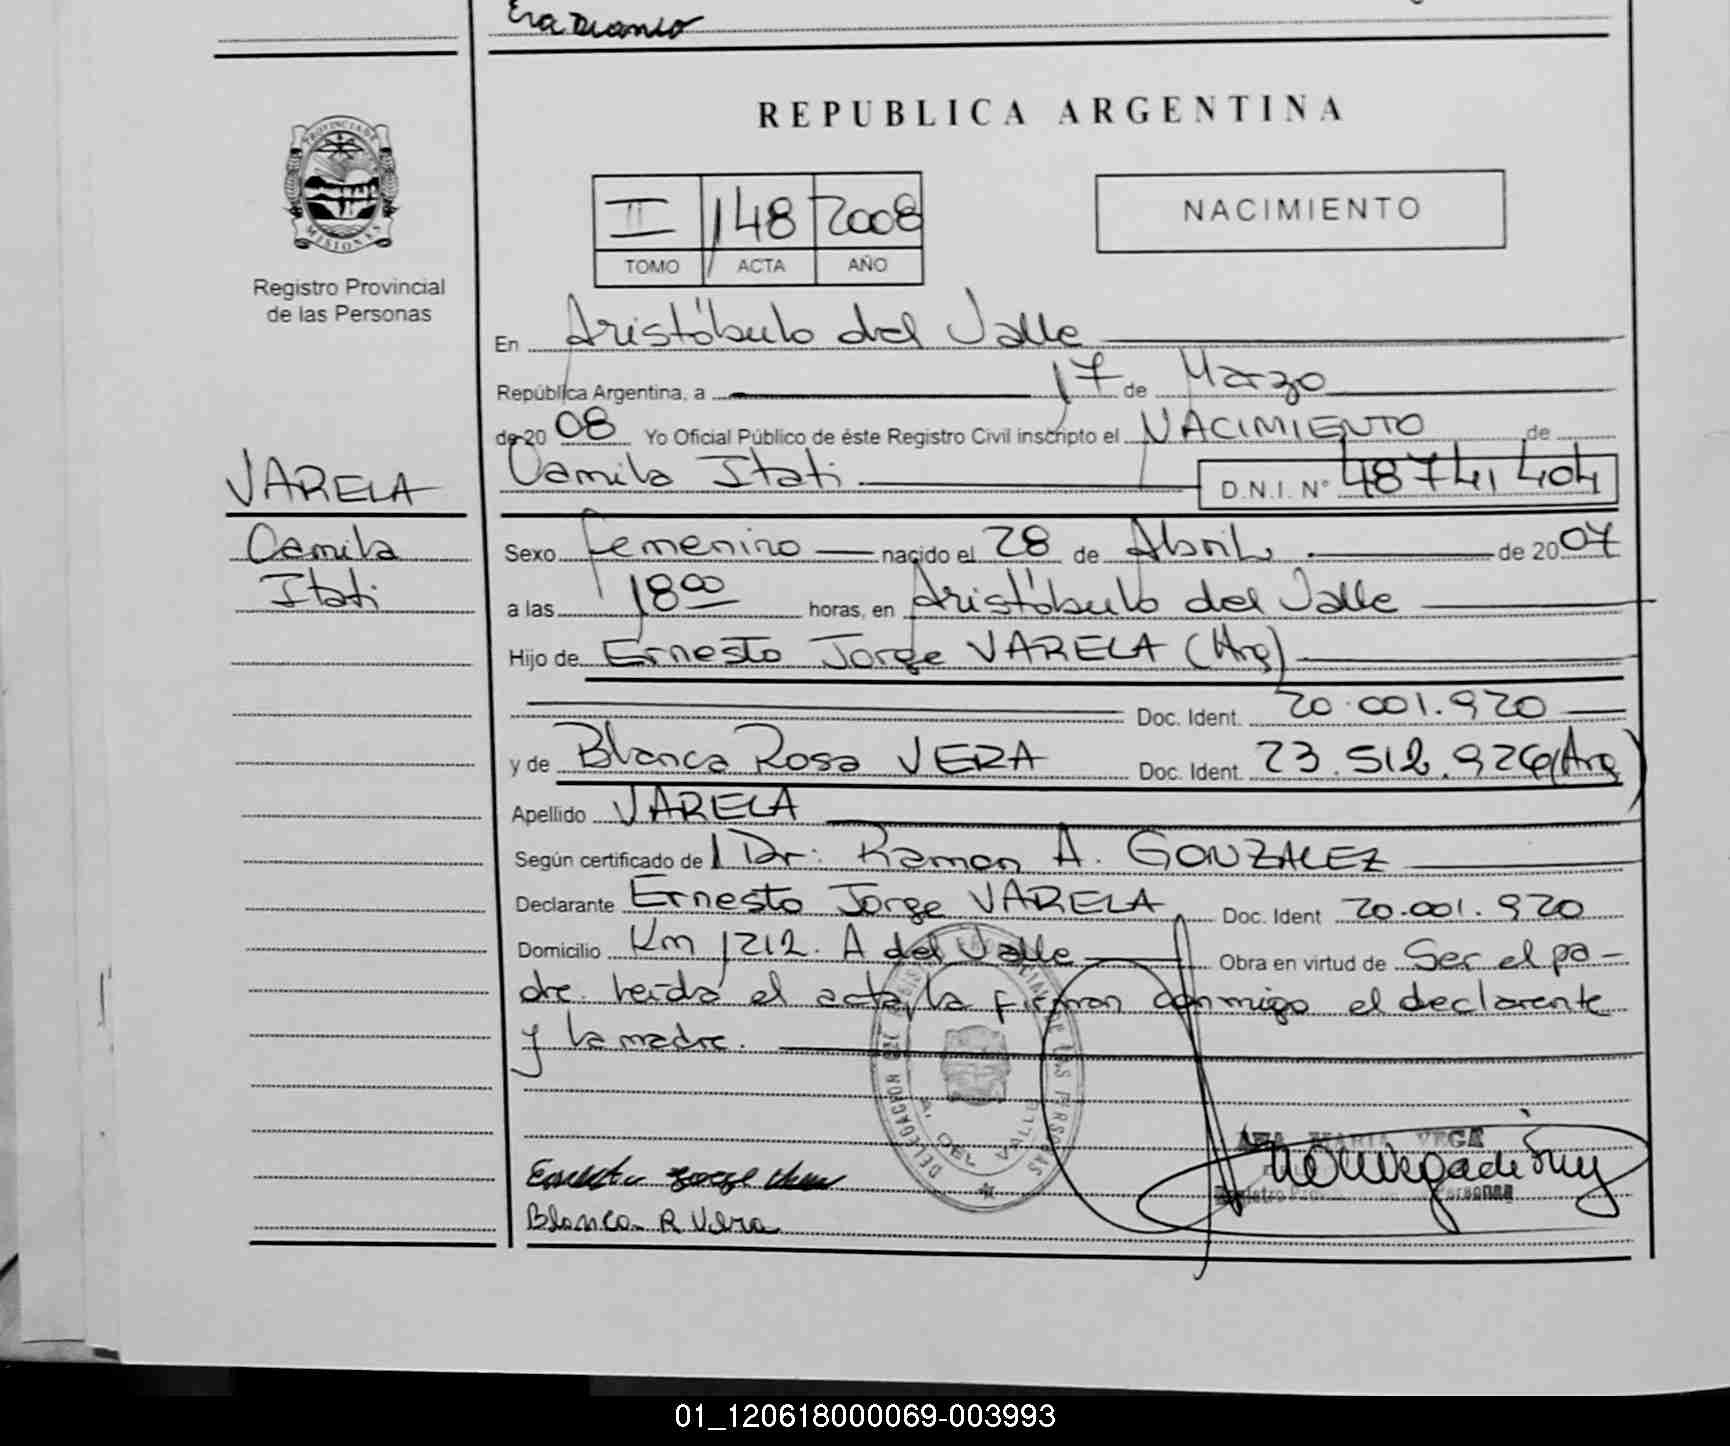 REPUBLICA ARGENTINA
PROVINCIA DE MISIONES
Registro Provincial
de las Personas
II 148 2008
TOMO ACTA AÑO
NACIMIENTO
En Aristóbulo del Valle
República Argentina, a 17 de Marzo
de 20 08 Yo Oficial Público de éste Registro Civil inscripto el NACIMIENTO de
Camila Itati D.N.I. N° 48741404
VARELA
Camila
Itati
Sexo femenino nacido el 28 de Abril de 20 07
a las 18 00 horas, en Aristóbulo del Valle
Hijo de Ernesto Jorge VARELA (Arg)
Doc. Ident. 20.001.920
y de Blanca Rosa VERA Doc. Ident. 23.512.926 (Arg)
Apellido VARELA
Según certificado de Dr: Ramon A. GONZALEZ
Declarante Ernesto Jorge VARELA Doc. Ident 20.001.920
Domicilio Km 1212. A del Valle Obra en virtud de Ser el pa-
dre. leida el acta, la firman conmigo el declarante
y la madre.
DELEGACION DEL REGISTRO PROVINCIAL DE LAS PERSONAS
A. DEL VALLE
ANA MARIA VEGA
Registro Personas
Ernesto Jorge
Blanca R Vera
01_120618000069-003993